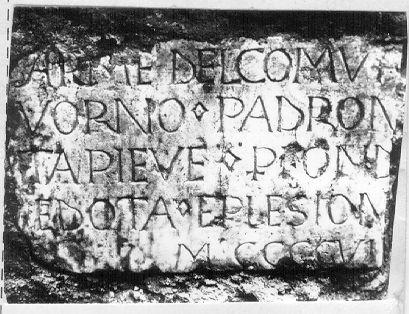 ARME DEL COMV
VORNO ◇ PADRON
TA PIEVE ◇ P◦ OND
EDOTA ◇ E PLESION
M CCCCVI